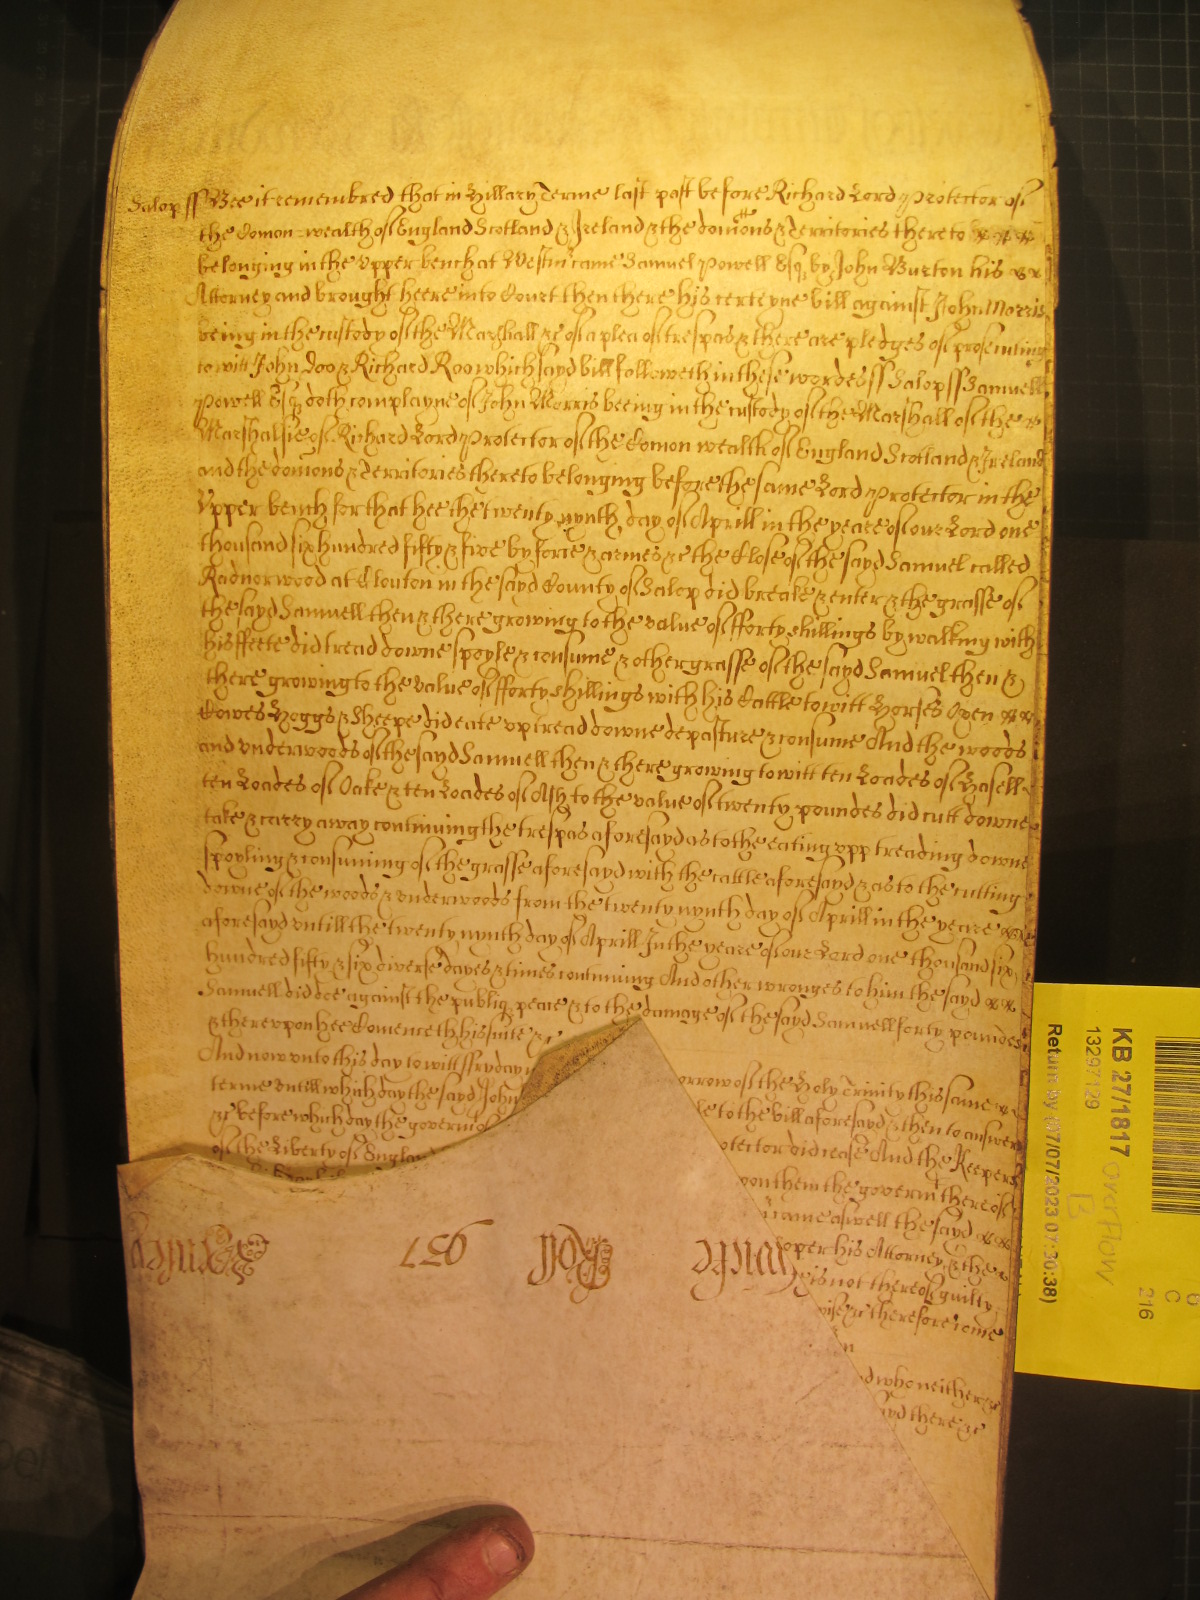 Salop ss Bee it remembred that in Hillary Terme last past before Richard Lord Protector of
the Comon-wealth of England Scotland & Ireland & the domions & Territories thereto
belonging in the upper bench at Westm came Samuel Powell Esq by John Burton his
Attorney and brought heere into Court then there his certeyne bill against John Morris
being in the custody of the Marshall &c of a plea of trespas & there are pledges of prosecuting
to witt John Doo & Richard Roo which sayd bill followeth in these wordes ss Salop ss Samuell
Powell Esq doth complayne of John Morris beeing in the custody of the Marshall of the
Marshalsie of Richard Lord Protector of the Comon wealth of England Scotland & Ireland
and the domions & Territories thereto belonging before the same Lord Protector in the
Upper bench for that hee the twenty nynth day of Aprill in the yeare of our Lord one
thousand six hundred fifty & five by force & armes &c the Close of the sayd Samuel called
Radnor wood at Clouton in the sayd County of Salop did breake & enter & the grasse of
the sayd Samuell then & there growing to the value of fforty shillings by walking with
his ffeete did tread downe spoyle & consume & other grasse of the sayd Samuel then &
there growing to the value of fforty shillings with his Cattle to witt Horses Oxen
Cowes Hoggs & Sheepe did eate up tread downe depasture & consume And the woods
and underwoods of the sayd Samuell then & there growing to witt ten Loades of Hasell
ten Loades of Oake & ten Loades of Ash to the value of twenty poundes did cutt downe
take & carry away continuing the trespas aforesayd as to the eating upp treading downe
spoyling & consuming of the grasse aforesayd with the cattle aforesayd & as to the cutting
downe of the woods & underwoods from the twenty nynth day of Aprill in the yeare
aforesayd untill the twenty nynth day of Aprill In the yeare of our Lord one thousand six
hundred fifty & six diverse dayes & times continuing And other wronges to him the sayd
Samuell did doe against the publiq peace & to the damage of the sayd Samuell forty poundes
& thereupon hee Comenceth his suite &c
And now unto this day to witt ffryday orrow of the Holy Trinity this same
terme untill which day the sayd John le to the bill aforesayd & then to answere
&c before which day the governm otector did cease And the Keepers
of the Liberty of England pon them the governm thereof
came aswell the sayd
oper his Attorney & the
is not thereof guilty
wise &c therefore come
n
d who neither &c
ayd there &c
Roll 957
KB 27/1817 overflow
B
13297129
Return by (07/07/2023 07:30:38)
C
216